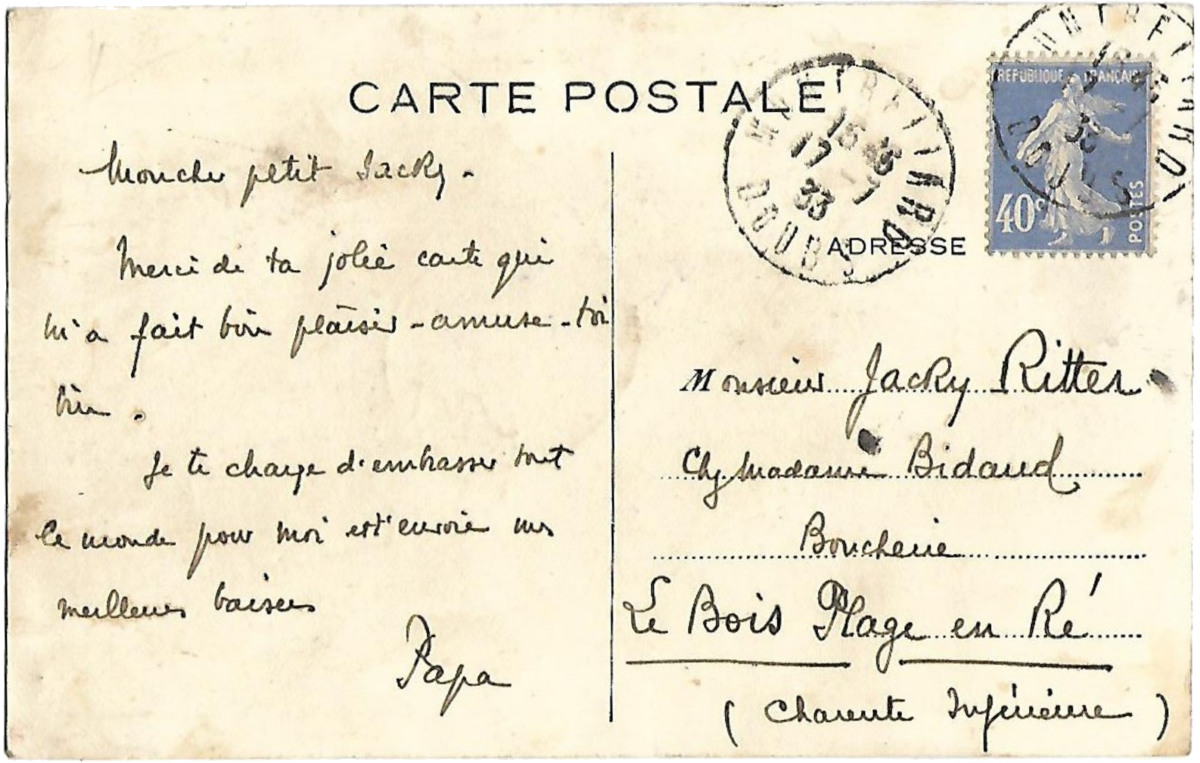 CARTE POSTALE
MONTFERRAND
15 45
17 - 7
33
DOUBS
REPUBLIQUE FRANÇAISE
40c
POSTES
33
DOUBS
Mon cher petit Jacky -
Merci de ta jolie carte qui
m'a fait bien plaisir - amuse-toi
bien.
Je te charge d'embrasser tout
le monde pour moi et t'envoie mes
meilleurs baisers
Papa
ADRESSE
Monsieur Jacky Ritter
Chz Madame Bidaud
Boucherie
Le Bois Plage en Ré
(Charente Inférieure)